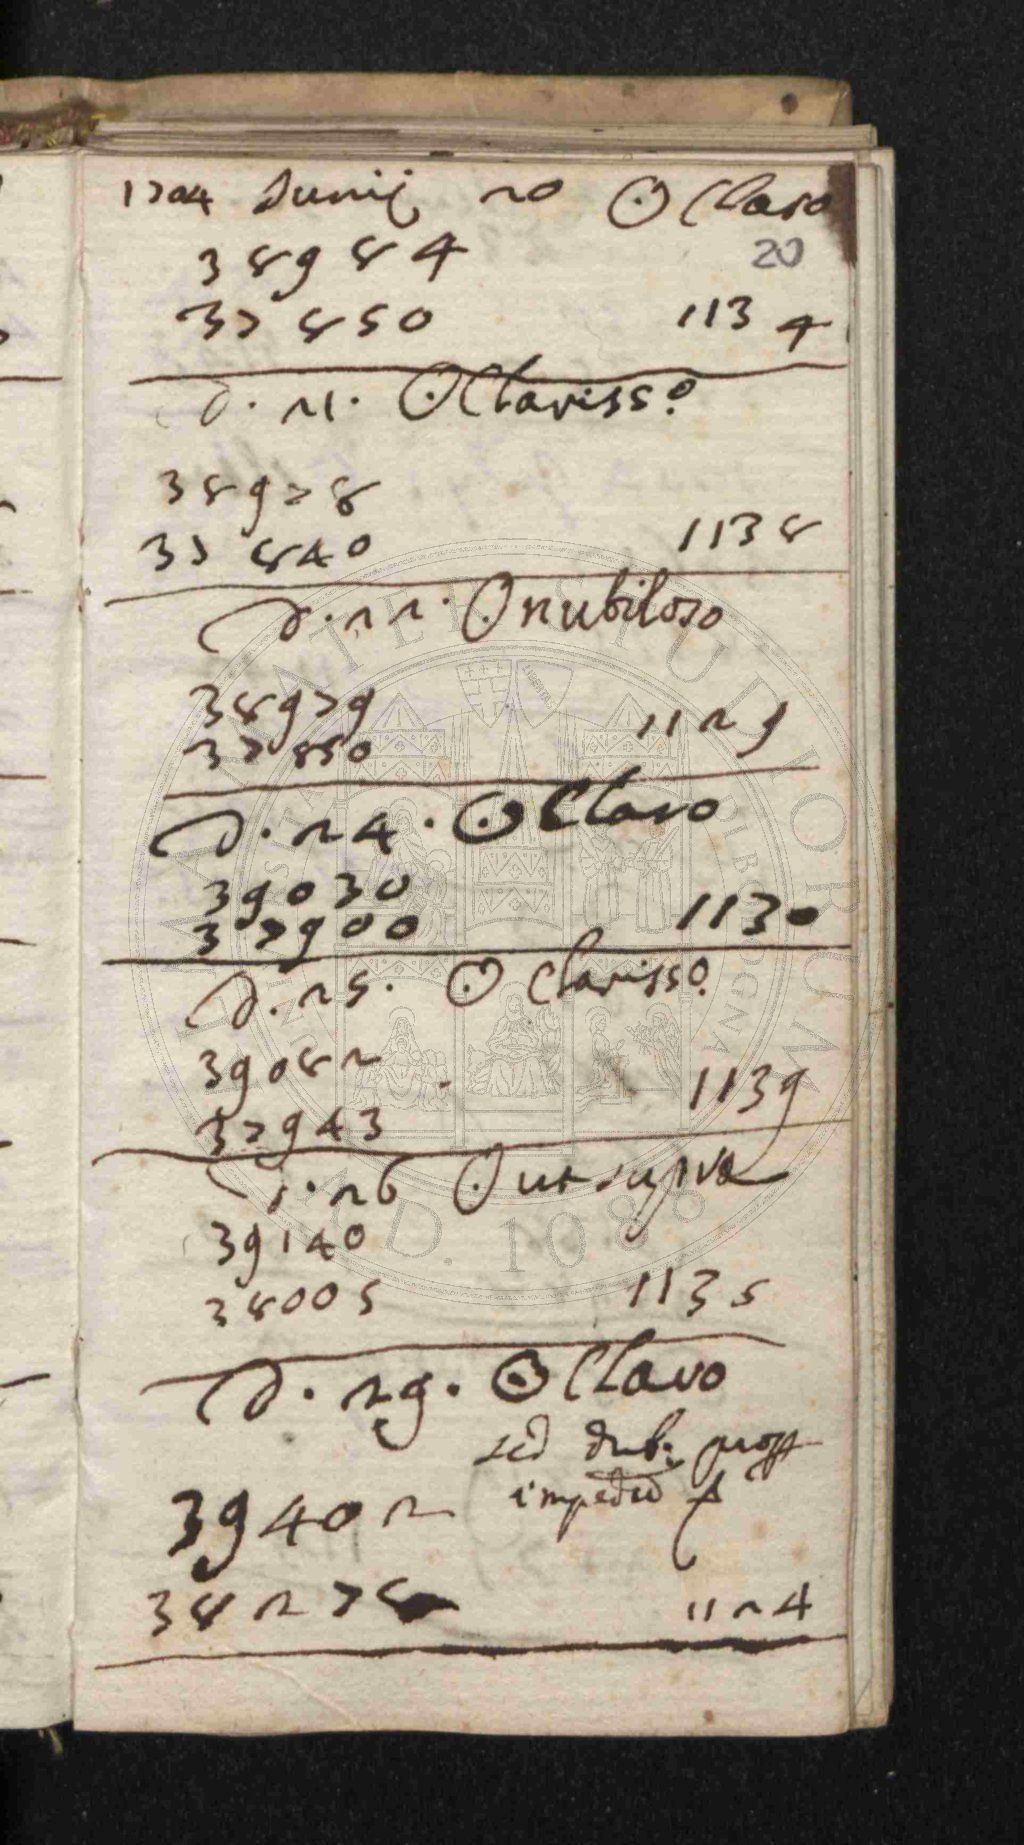 1704 Junij 20 ☉ Claro
20
38984
37850 1134
d. 21. ☉ Clariss.º
38978
37840 1138
d. 22. ☉ nubiloso
38979
37850 1129
d. 24. ☉ Claro
39030
37900 1130
d. 25. ☉ Clarisso.
39082
37943 1139
d. 26 ☉ ut supra
39140
38005 1135
d. 29. ☉ Claro
sed dub.
39402
38278 1124
ALMA MATER STUDIORUM
A.D. 1088